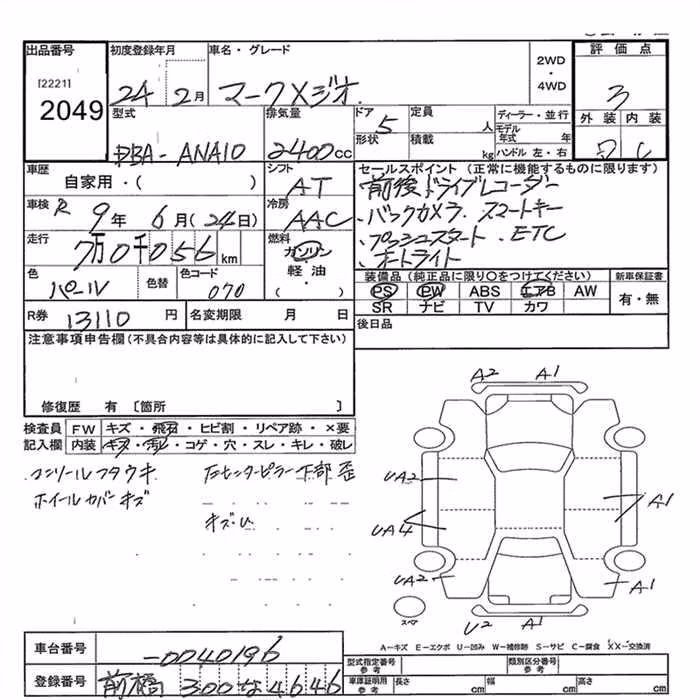 出品番号
[2221]
2049
初度登録年月
24年 2月
車名・グレード
マークXジオ
2WD
・
4WD
評価点
3
型式
DBA-ANA10
排気量
2400cc
ドア
5
形状
定員
人
積載
kg
ディーラー・並行
モデル年式 年
ハンドル 左・右
外装 内装
C
車歴
自家用・( )
シフト
AT
セールスポイント (正常に機能するものに限ります)
前後ドライブレコーダー
・バックカメラ. スマートキー
・プッシュスタート. ETC
・オートライト
車検 R 9年 6月(24日)
冷房
AAC
走行
7万0千056km
燃料
ガソリン
軽油
( )
色
パール
色替
色コード
070
装備品 (純正品に限り〇をつけてください)
PS PW ABS エアB AW
SR ナビ TV カワ
新車保証書
有・無
R券 13110円
名変期限 月 日
後日品
注意事項申告欄(不具合内容等は具体的に記入して下さい)
修復歴 有 〔箇所 〕
検査員記入欄
FW キズ・飛石・ヒビ割・リペア跡・×要
内装 キズ・汚レ・コゲ・穴・スレ・キレ・破レ
コンソールフタウキ
ホイールカバーキズ
センターピラー下部 歪
キズ
A2 A1
UA2
UA4
A1
UA2
A1
U2 A1
スペア
A-キズ E-エクボ U-凹み W-補修跡 S-サビ C-腐食 XX-交換済
車台番号
-0040196
登録番号
前橋 300 な 4646
型式指定番号 参考
類別区分番号 参考
車庫証明用 参考
長さ cm
幅 cm
高さ cm